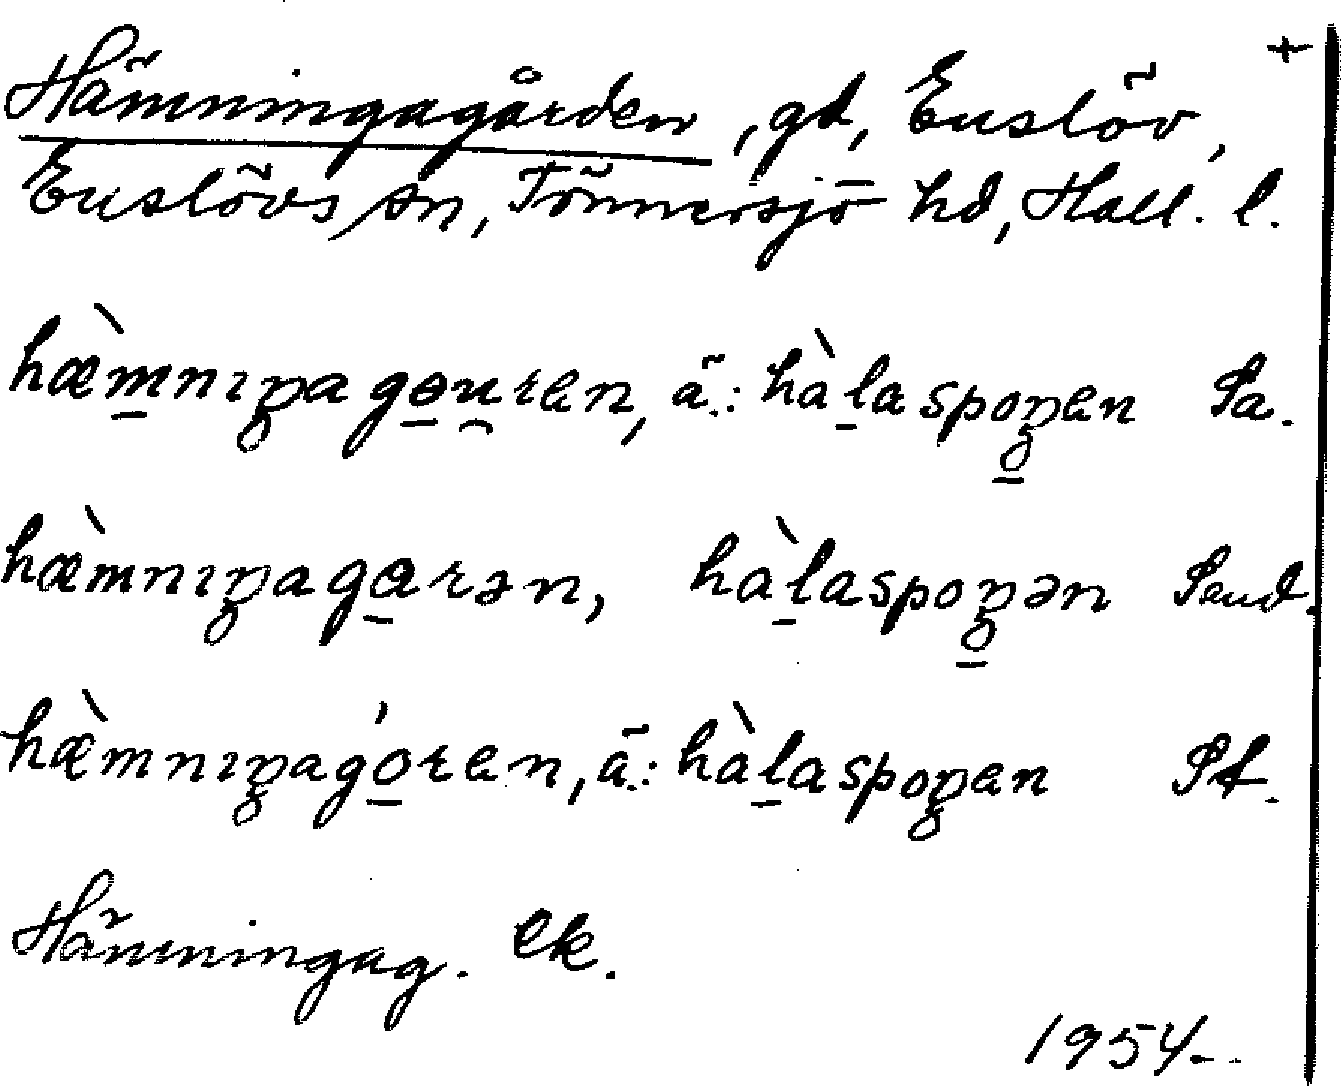 Hämningagården, gd, Enslöv, +
Enslövs sn, Tönnersjö hd, Hall. l.
hæ̀mnıŋagɵu̯ren, ä.: hàlaspoŋen Sa.
hæ̀mnıŋagarən, hàlaspoŋən Send.
hæ̀mnıŋagóren, ä.: hàlaspoŋen St.
Hämningag. Ek.
1954.